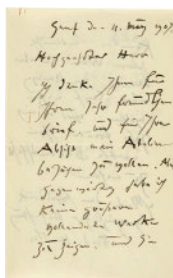 Genf den 11. März 190
Hochgeehrter Herr
Ich danke Ihnen für
Ihren sehr freundlichen
Brief und für Ihre
Absicht mein Atelier
besuchen zu wollen.
gegenwärtig habe ich
keine größeren
vollendeten Werke
zu zeigen, und bin